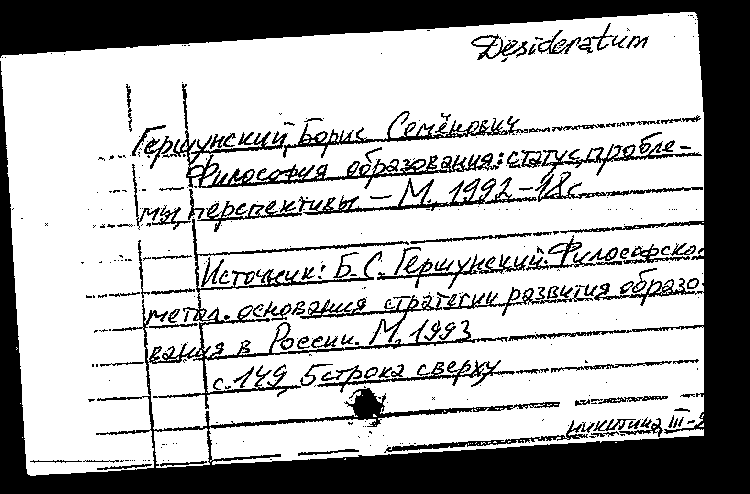 Desideratum
Гершунский, Борис Семёнович
Философия образования: статус, пробле-
мы, перспективы – М., 1992 – 98 с.
Источник: Б.С. Гершунский. Философско-
метод. основания стратегии развития образо-
вания в России. М., 1993
с. 149, 5 строка сверху
никитина, III-